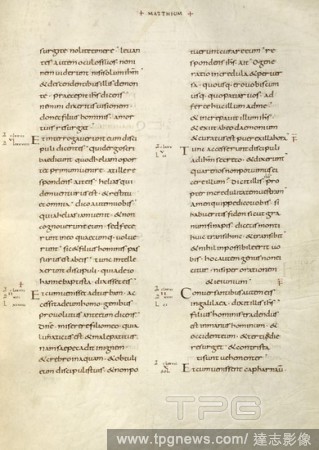 MATTHIUM
surgite nolite timere · leuan
tes autem oculos suos nemi
nem uiderunt nisi solum ihm
& descendentibus illis demon
te · praecepit ihs dicens
nemini dixeritis uisionem
donec filius hominis a mor
tuis resurgat
Et interrogauerunt eum disci
puli dicentes · quid ergo scri
bae dicunt quod heliam opor
teat primum uenire · at ille re
spondens ait eis · helias qui
dem uenturus est & restitu
et omnia · dico autem uobis
quia helias iam uenit · & non
cognouerunt eum sed fece
runt in eo quaecumq· uolue
runt · sic & filius hominis pas
surus est ab eis · tunc intelle
xerunt discipuli quia de io
hanne baptista dixisset eis
Et cum uenisset ad turbam ac
cessit ad eum homo genibus
prouolutus ante eum dicens
dne · miserere filio meo · quia
lunaticus est & male patitur ·
nam saepe cadit in ignem
& crebro in aquam · & obtuli
eum discipulis tuis · & non po
tuerunt curare eum · re
spondens ihs · ait · O gene
ratio incredula & peruer
sa · quousq· ero uobiscum
usq· quo patiar uos · ad
ferte huc illum ad me ·
& increpauit illum ihs
& exiit ab eo daemonium
& curatus est puer ex illa hora
Tunc accesserunt discipuli
ad ihm secreto · & dixerunt
quare nos non potuimus ei
cere illum · dicit illis prop
ter incredulitatem uestram
amen quippe dico uobis · si
habueritis fidem sicut gra
num sinapis · dicetis monti
huic transi hinc · & transibit
& nihil impossibile erit uo
bis · hoc autem genus non ei
citur · nisi per orationem
& ieiunium
Conuersantibus autem eis
in galilaea · dixit illis ihs
filius hominis tradendus
est in manus hominum · &
occident eum · & tertio die
resurget · & contrista
ti sunt uehementer
Et cum uenissent capharnaum
TPG
www.tpgnews.com / 達志影像